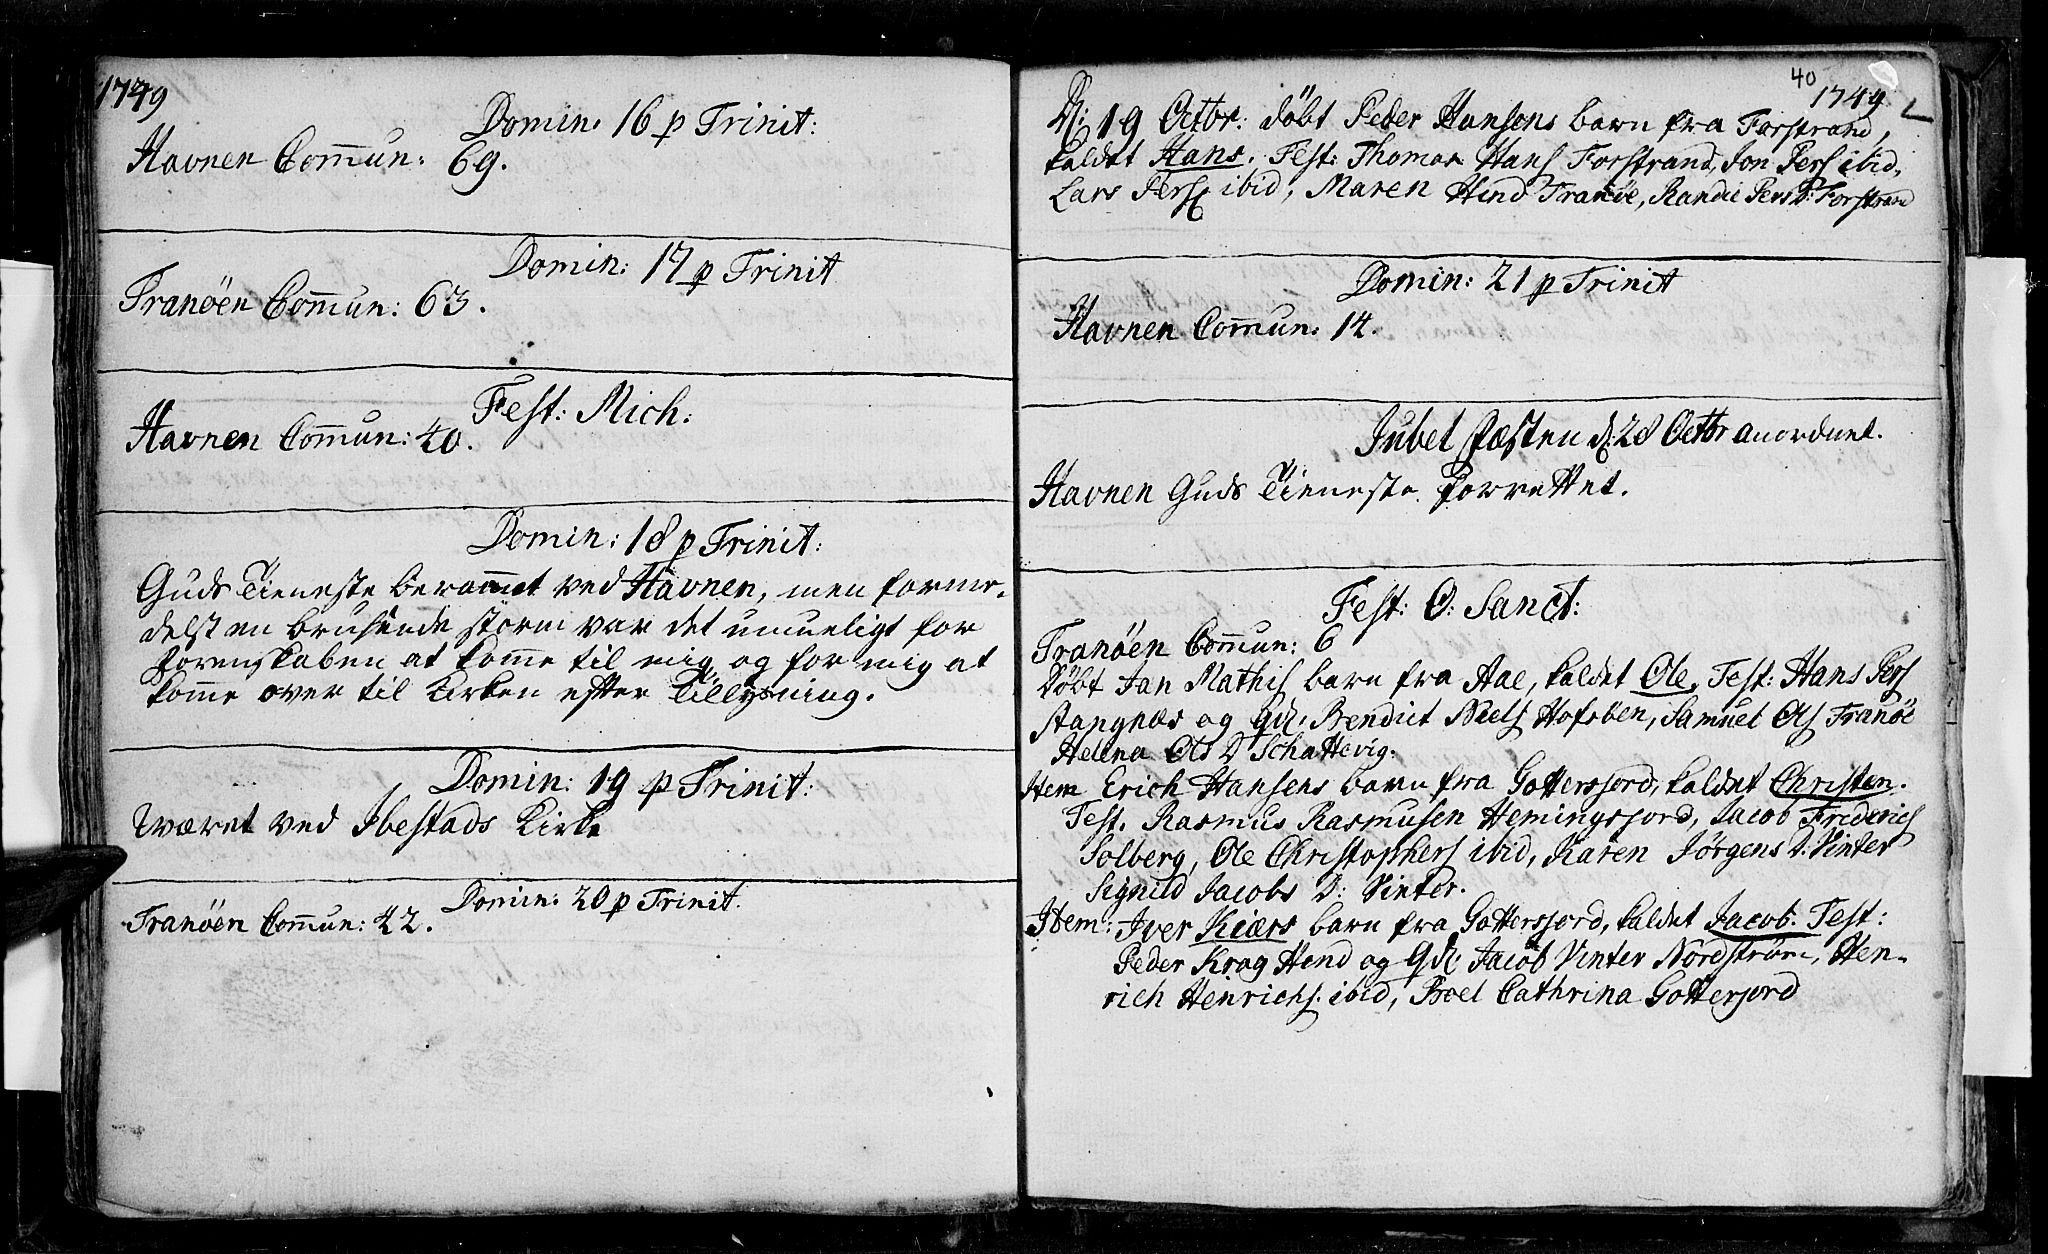 1749
Domin: 16 p Trinit:
Havnen Com̄un: 69.
Domin: 17 p Trinit
Tranöen Com̄un: 63.
Fest: Mich:
Havnen Com̄un: 40.
Domin: 18 p Trinit:
Guds Tieneste beram̄et ved Havnen, men forme-
delst en brusende storm var det umueligt for
Præsteskaben at kom̄e til mig og for mig at
kom̄e over til Kirken efter Tillysning.
Domin: 19 p Trinit:
Været ved Ibestads Kirke
Domin: 20 p Trinit.
Tranöen Com̄un: 42.
40
1749
D: 19 Octbr: döbt Peder Hansens barn fra Forstrand,
kaldet Hans. Test: Thomas Hans Forstrand, Jon Pers ibid,
Lars Pers ibid, Maren Hend Tranöe, Randie Pers D: Forstrand
Domin: 21 p Trinit
Havnen Com̄un: 14.
Jubel Fæsten d: 28 Octbr anordnet.
Havnen Guds Tieneste forrettet.
Fest: O: Sanct:
Tranöen Com̄un: 6
Döbt Jan Mathis barn fra Aae, kaldet Ole. Test: Hans Pers
Stangnæs og Qde: Bendict Niels Hofsöen, Samuel Ols Tranöe
Helena Ols D Schattevig.
Item Erich Hansens barn fra Gottersjord, kaldet Christen.
Test. Rasmus Rasmusen Hemingsjord, Jacob Friderics
Solberg, Ole Christophers ibid, Karen Jörgens D: Vinter
Signild Jacobs D: Vinter.
Item: Iver Kiærs barn fra Gottersjord, kaldet Jacob. Test:
Peder Krog Hend og Qde Jacob Vinter Nordström, Hen-
rich Henrichs. ibid, Boel Cathrina Gottersjord